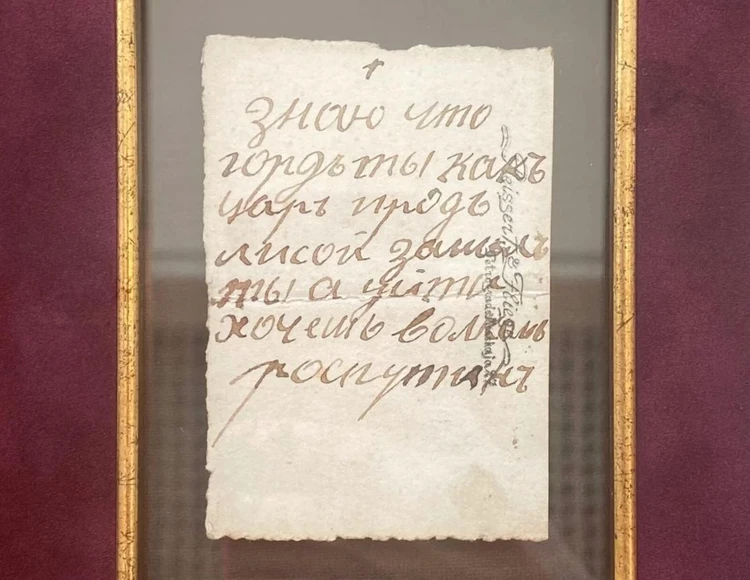 +
Знаю что
гордъ ты какъ
царь иродъ
лисой зашолъ
ты а уйти
хочешь волкомъ
роспутинъ